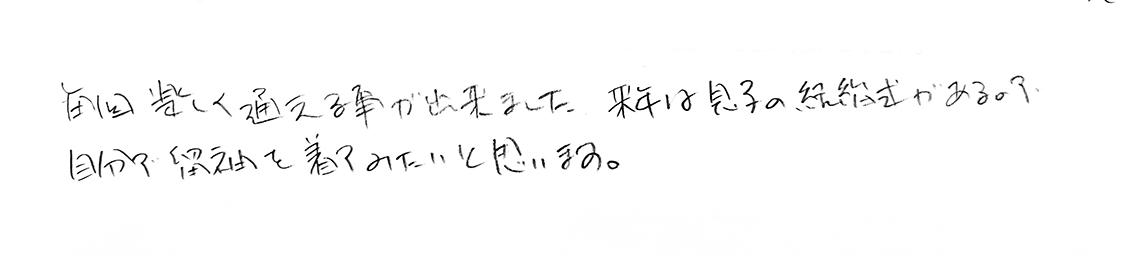 毎回楽しく通える事が出来ました 来年は息子の結婚式があるので
自分で留袖を着てみたいと思います。